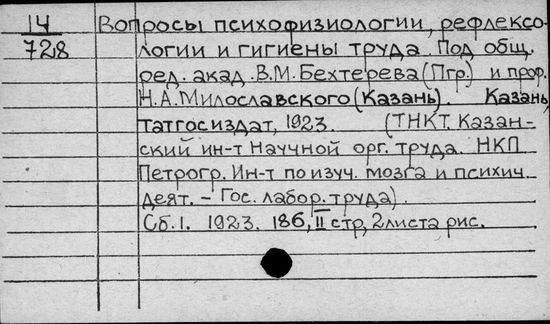 14 Вопросы психофизиологии, рефлексо-
728 логии и гигиены труда. Под общ.
ред. акад. В.М. Бехтерева (Пгр.) и проф.
Н.А. Милославского (Казань). Казань,
татгосиздат, 1923. (ТНКТ. Казан-
ский ин-т Научной орг. труда. НКП
Петрогр. Ин-т по изуч. мозга и психич.
деят. – Гос. лабор. труда).
Сб. 1. 1923. 186, II стр, 2 листа рис.